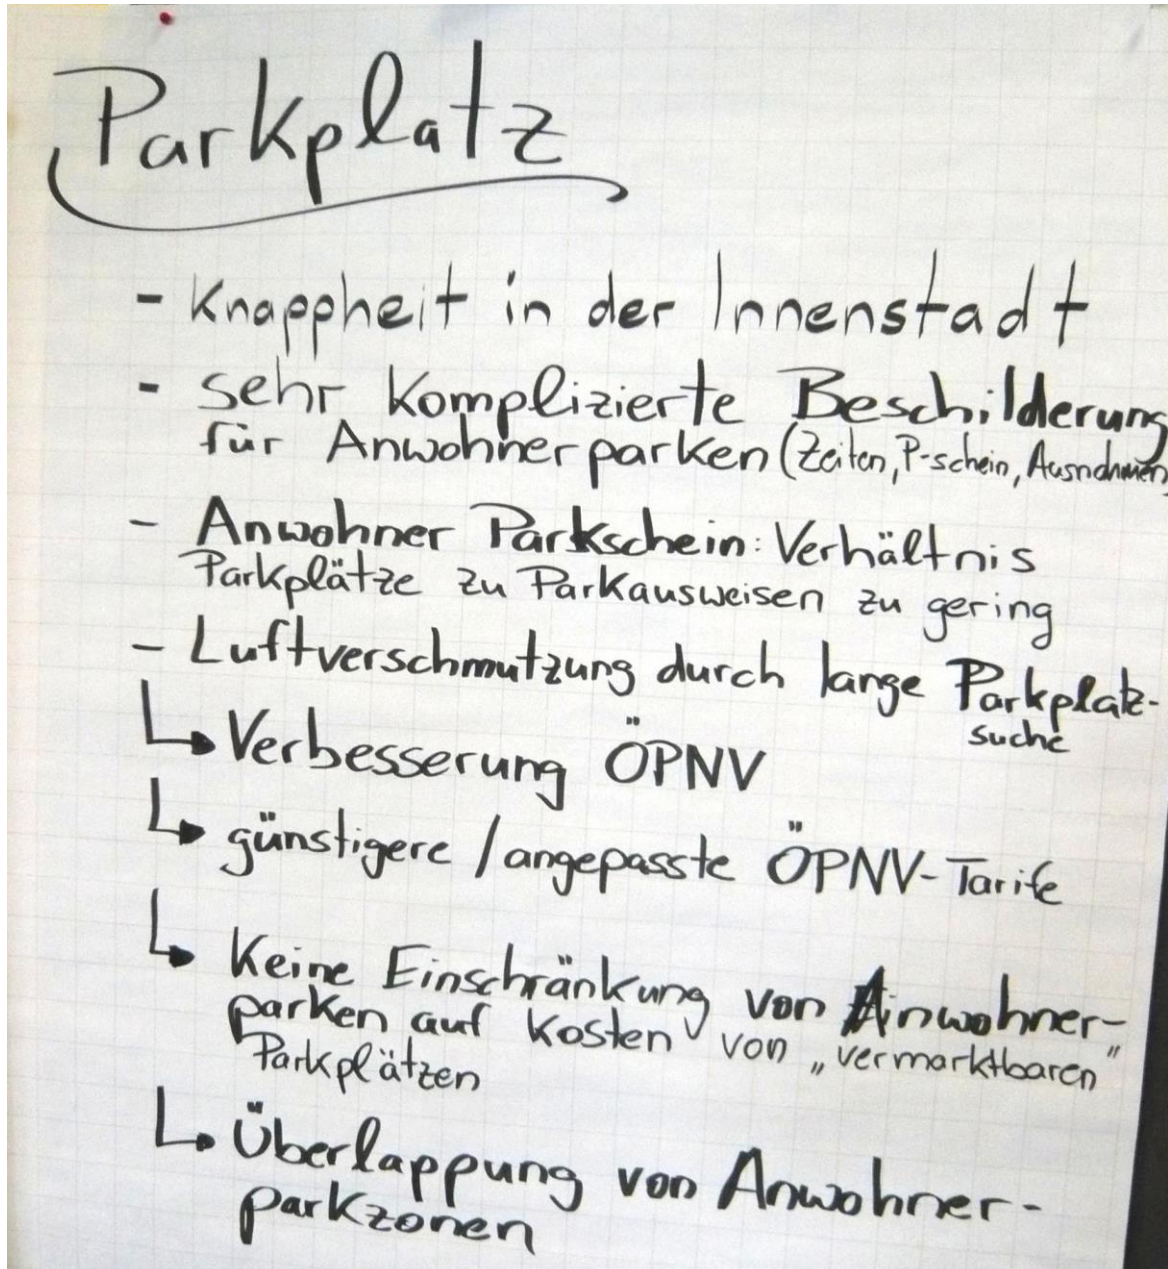 Parkplatz
- Knappheit in der Innenstadt
- sehr komplizierte Beschilderung
für Anwohnerparken (Zeiten, P-schein, Ausnahmen)
- Anwohner Parkschein: Verhältnis
Parkplätze zu Parkausweisen zu gering
- Luftverschmutzung durch lange Parkplatz-
suche
↳ Verbesserung ÖPNV
↳ günstigere / angepasste ÖPNV-Tarife
↳ Keine Einschränkung von Anwohner-
parken auf Kosten von „vermarktbaren"
Parkplätzen
↳ Überlappung von Anwohner-
parkzonen